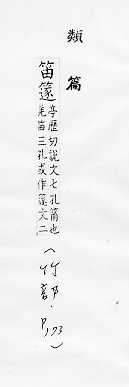 類篇
笛篴亭歷切說文七孔筩也
羌笛三孔或作篴文二
(竹部.